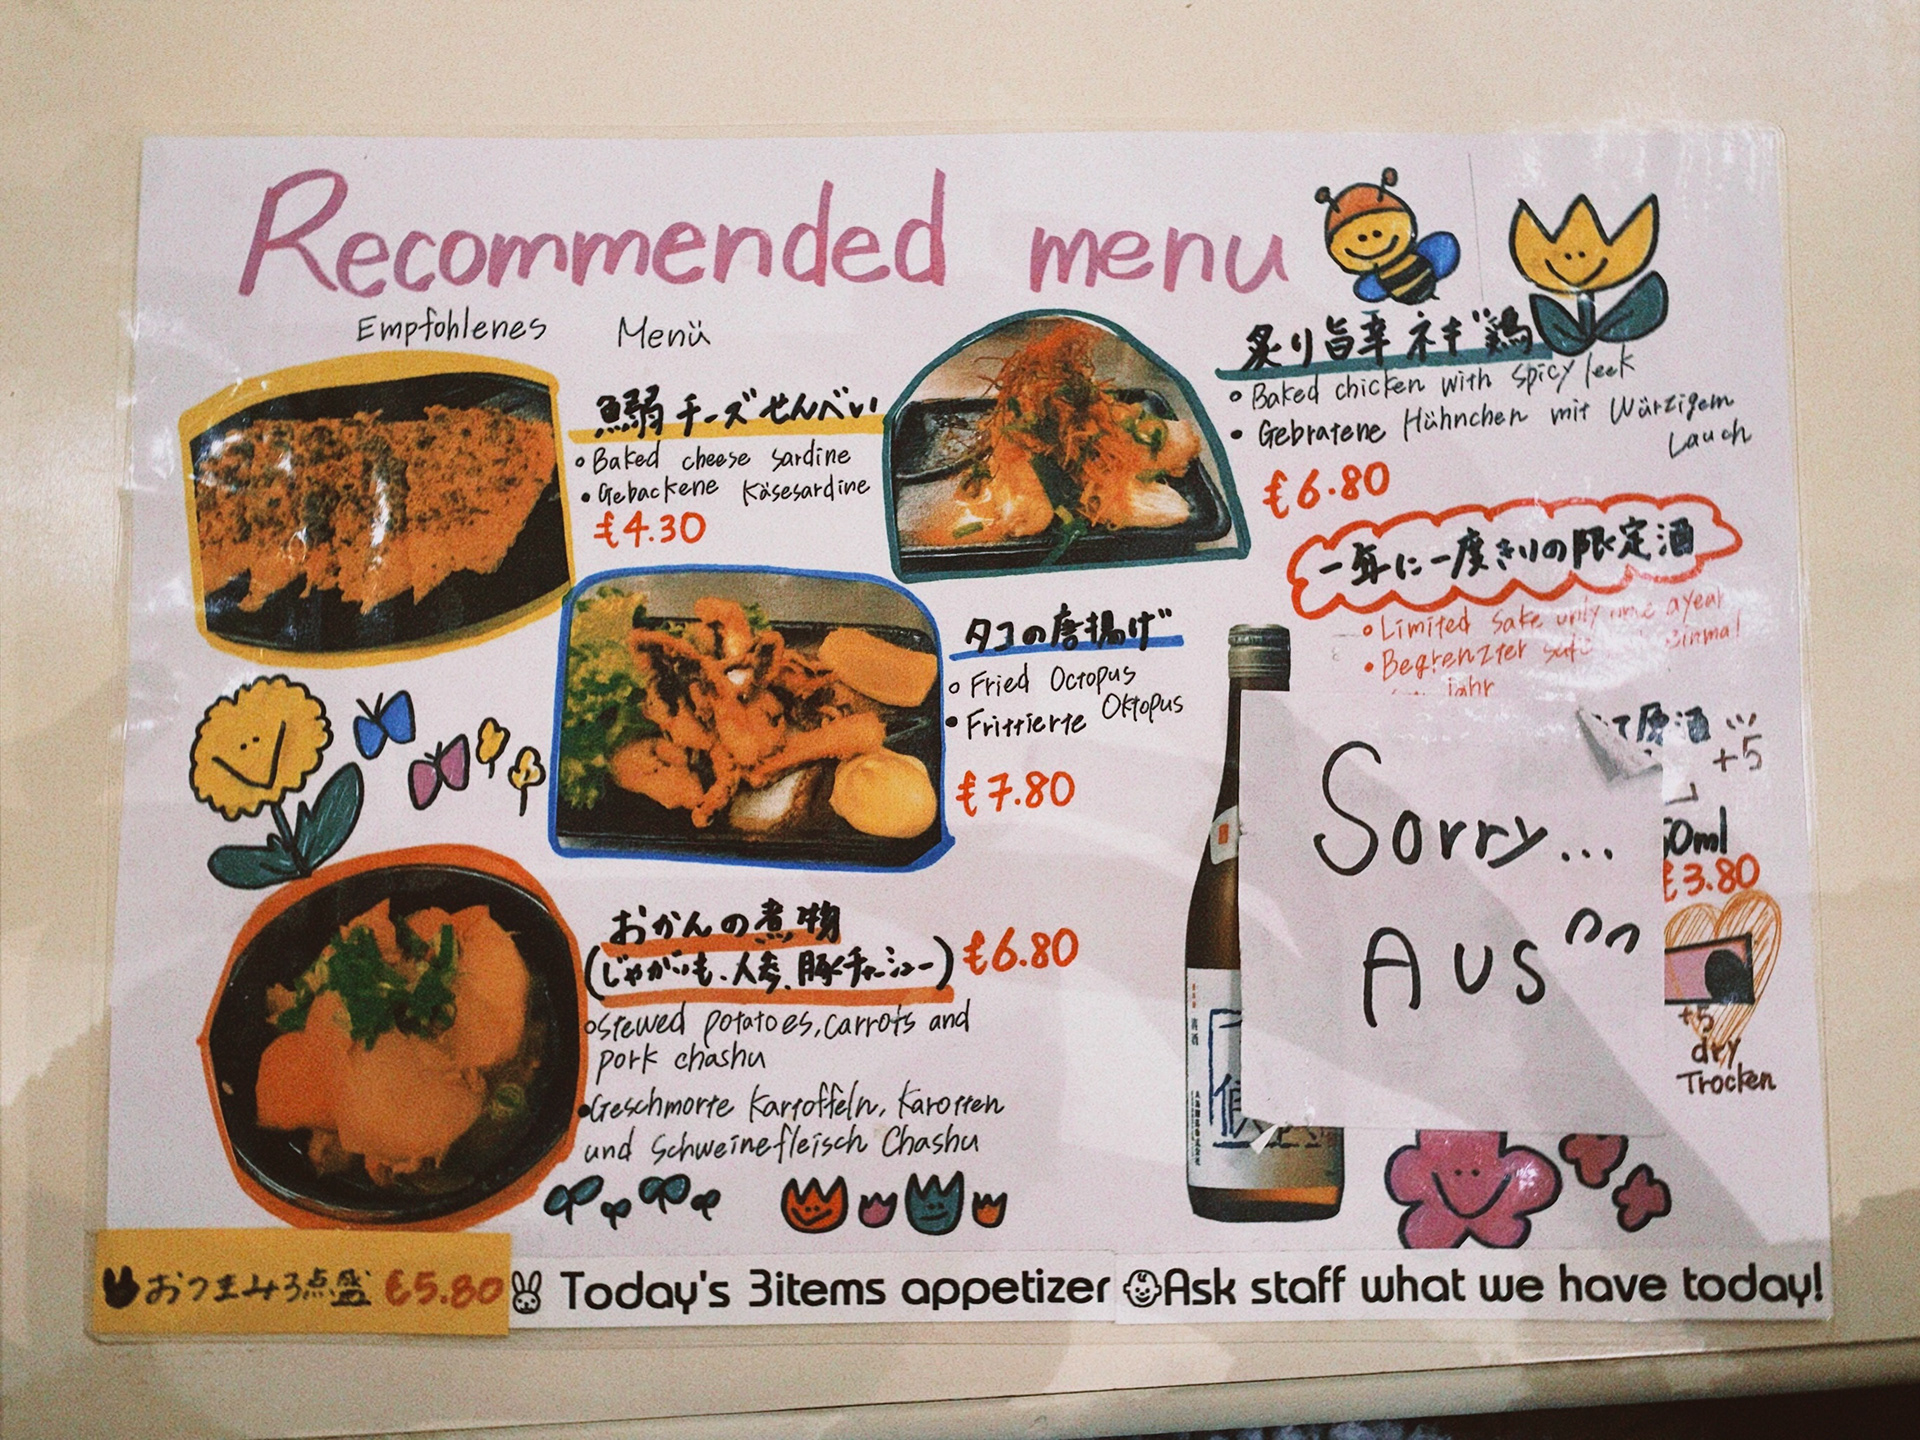 Recommended menu
Empfohlenes Menü
鰯チーズせんべい
Baked cheese sardine
Gebackene Käsesardine
€4.30
炙り旨辛ネギ鶏
Baked chicken with spicy leek
Gebratene Hühnchen mit Würzigem
Lauch
€6.80
一年に一度きりの限定酒
Limited sake only a year
Begrenzter
jahr
原酒
+5
50ml
€3.80
+5
dry
Trocken
Sorry...
Aus
タコの唐揚げ
Fried Octopus
Frittierte Oktopus
€7.80
おかんの煮物
(じゃがいも、人参、豚チャーシュー)
€6.80
Stewed potatoes, carrots and
pork chashu
Geschmorte Kartoffeln, Karotten
und Schweinefleisch Chashu
おつまみ3点盛 €5.80
Today's 3items appetizer
Ask staff what we have today!